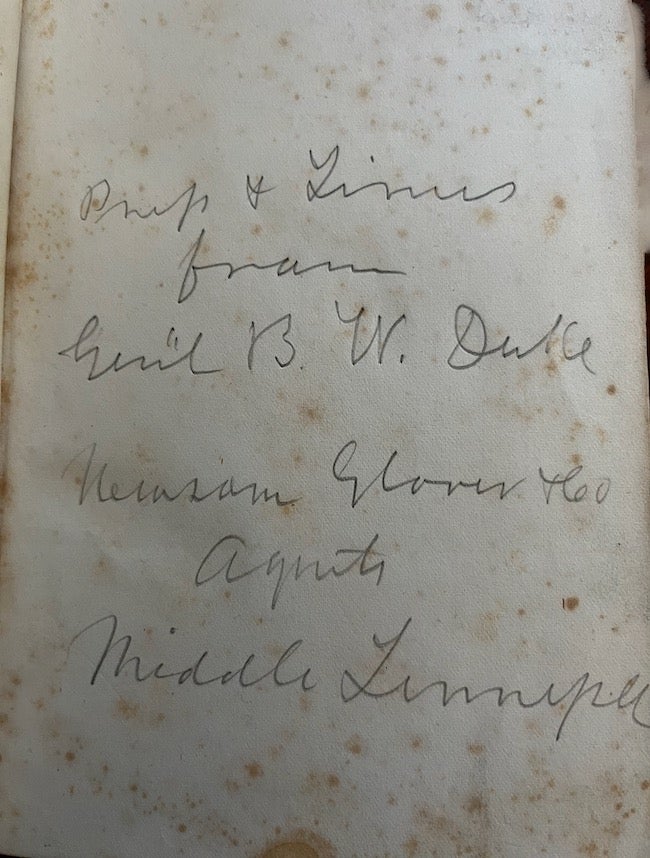 & Times
from
Gen'l B. W. Duke
Newsom Glover & Co
Agents
Middle Tennessee